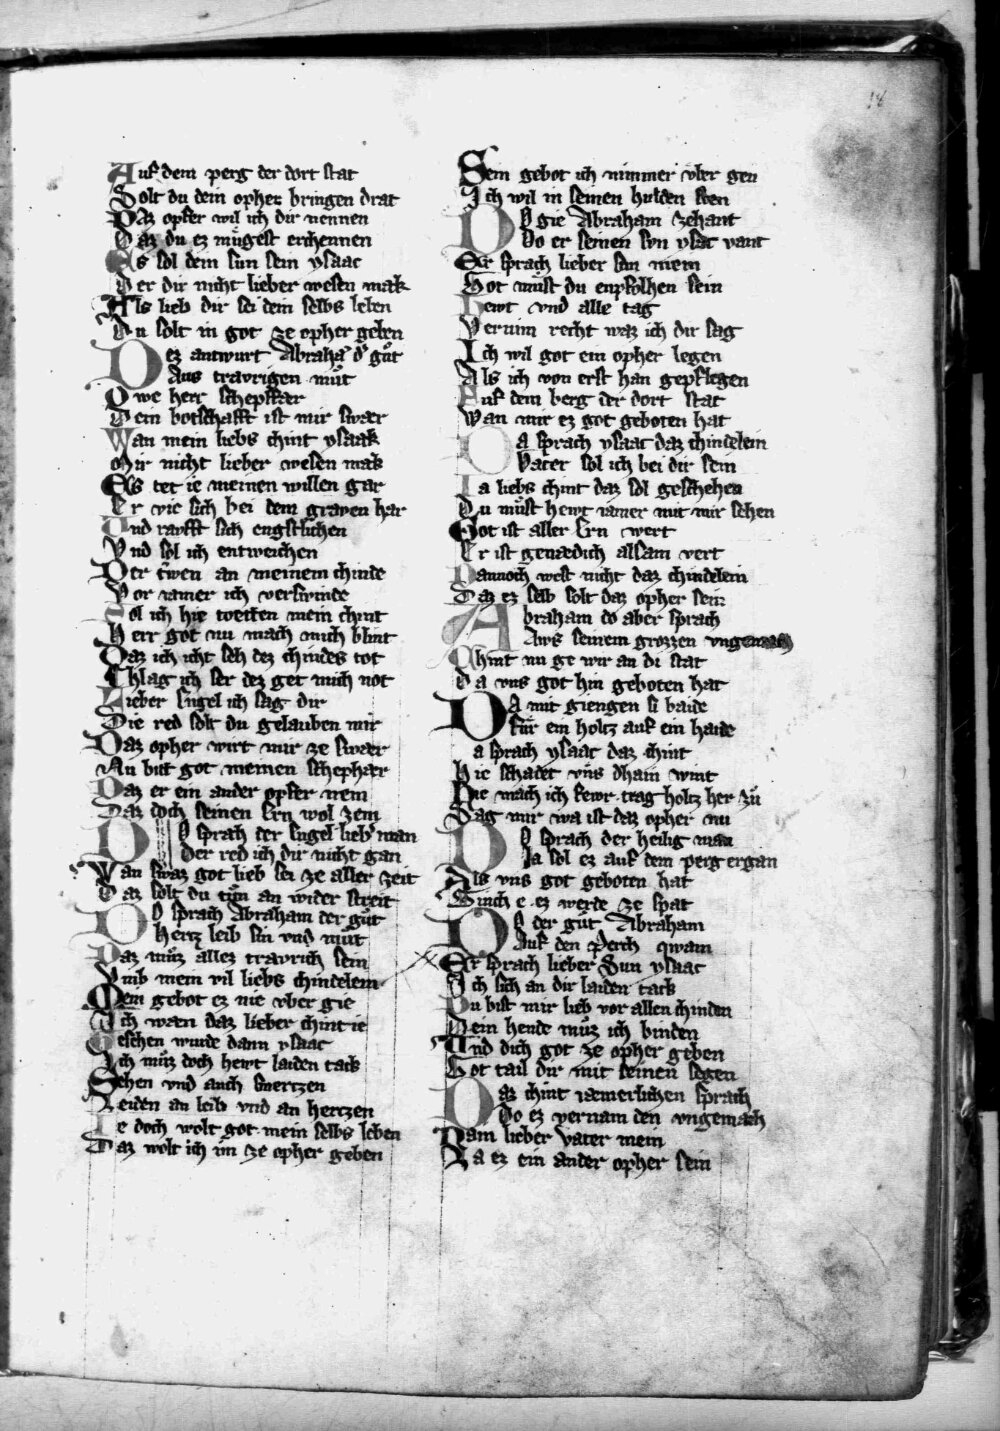 18
Auf dem perg der dort stat
Solt du dein opher bringen drat
Daz opfer wil ich dir nennen
Daz du ez mügest erchennen
Es sol dein sun sein ysaac
Der dir nicht lieber wesen mak
Als lieb dir sei dein selbs leben
Du solt in got ze opher geben
Dez antwurt Abraham der gůt
Aus travrigen můt
Owe herr schepffær
Dein botschafft ist mir swær
Wan mein liebs chint ysaak
Mir nicht lieber wesen mak
Es tet ie meinen willen gar
Er vie sich bei dem grawen har
Und raufft sich engstlichen
Und sol ich entweichen
Der trwen an meinem chinde
Vor iamer ich verswinde
Sol ich hie toetten mein chint
Herr got nu mach mich blint
Daz ich icht seh dez chindes tot
Chlag ich ser dez get mich not
Lieber engel ich sag dir
Die red solt du gelauben mir
Daz opher wirt mir ze swær
Nu bitt got meinen schephær
Daz er ein ander opfer nem
Daz doch seinen ern wol zem
Do sprach der engel lieb man
Der red ich dir nicht gan
Wan swaz got lieb sei ze aller zeit
Daz solt du tůn an wider streit
Do sprach Abraham der gůt
Hertz leib sin vnd můt
Daz můz allez travrich sein
Vmb mein vil liebs chindelein
Dem gebot ez nie vber gie
Ich wan daz lieber chint ie
Gesehen wurde dann ysaac
Ich můz doch hewt laiden tack
Sehen vnd auch smertzen
Leiden an leib vnd an hertzen
Ie doch wolt got mein selbs leben
Daz wolt ich im ze opher geben
Sein gebot ich nimmer vber gen
Ich wil in seinen hulden sten
Do gie Abraham zehant
Do er seinen svn ysac vant
Er sprach lieber sun mein
Got můst du enpfolhen sein
Hewt vnd alle tag
Vernim recht waz ich dir sag
Ich wil got ein opher legen
Als ich von erst han gepflegen
Auf dem berg der dort stat
Wan mir ez got geboten hat
Da sprach ysaac daz chindelein
Vater sol ich bei dir sein
Ia liebs chint daz sol geschehen
Du můst hewt iamer mit mir sehen
Got ist aller ern wert
Er ist genædich alsam vert
Dannoch west nicht daz chindelein
Daz ez selb solt daz opher sein
Abraham do aber sprach
Aws seinem grozzen vngemach
Chint nu ge wir an di stat
Da vns got hin geboten hat
Da mit giengen si baide
Für ein holtz auf ein haide
Da sprach ysaac daz chint
Hie schadet vns dhain wint
Hie mach ich fewr trag holtz her zů
Sag mir wa ist daz opher nu
Do sprach der heilig man
Ia sol ez auf dem perg ergan
Als vns got geboten hat
Sinch e ez werde ze spat
Do der gůt Abraham
Auf den perch qwam
Er sprach lieber Sun ysaac
Ich sich an dir laiden tack
Du bist mir lieb vor allen chinden
Dein hende můz ich binden
Und dich got ze opher geben
Got tail dir mit seinen segen
Daz chint iæmerlichen sprach
Do ez vernam den vngemach
Nam lieber vater mein
La ez ein ander opher sein